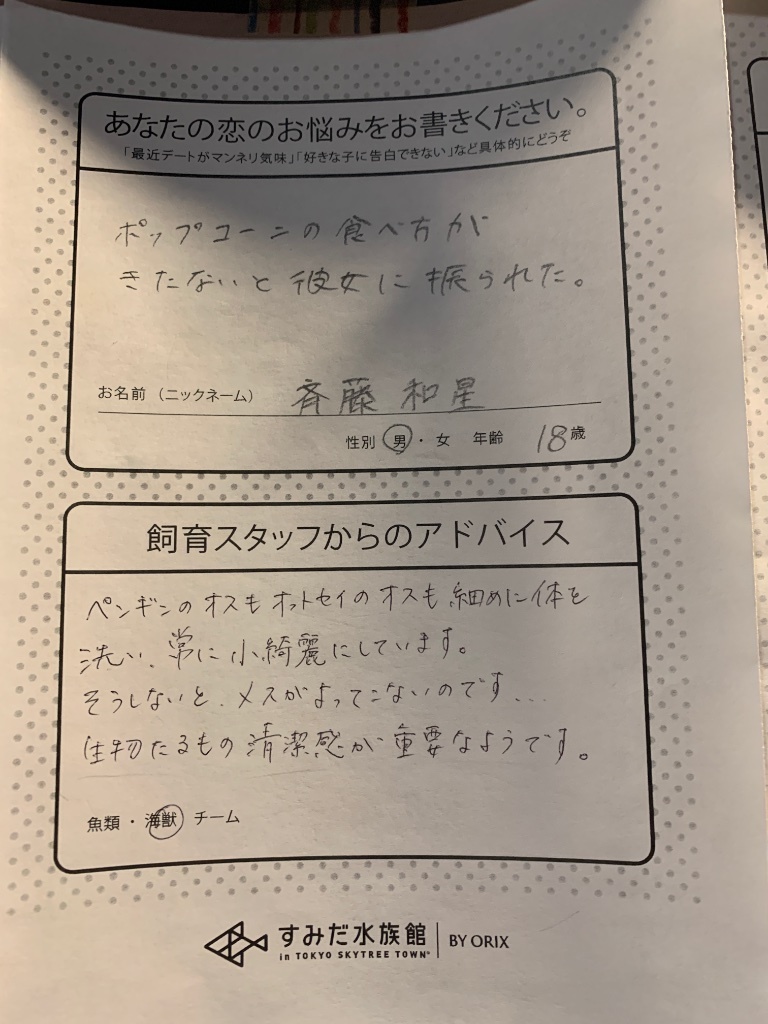 あなたの恋のお悩みをお書きください。
「最近デートがマンネリ気味」「好きな子に告白できない」など具体的にどうぞ
ポップコーンの食べ方が
きたないと彼女に振られた。
お名前（ニックネーム） 斉藤 和星
性別 男・女 年齢 18歳
飼育スタッフからのアドバイス
ペンギンのオスもオットセイのオスも細めに体を
洗い、常に小綺麗にしています。
そうしないと、メスがよってこないのです…
生物たるもの清潔感が重要なようです。
魚類・海獣 チーム
すみだ水族館 BY ORIX
in TOKYO SKYTREE TOWN®